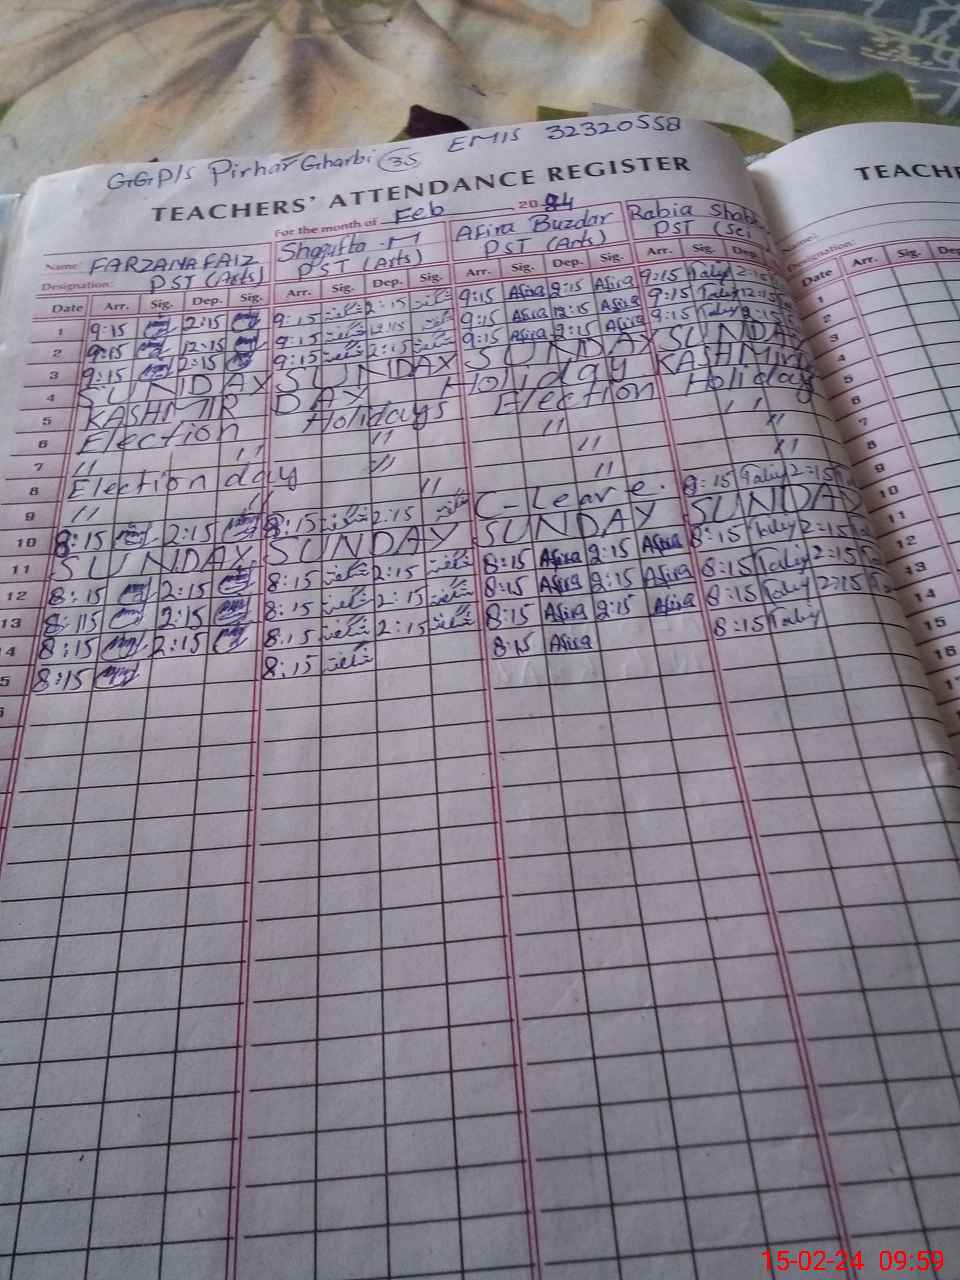 GGP/S Pirhar Gharbi 35 EMIS 32320558
TEACHERS' ATTENDANCE REGISTER
TEACHE
For the month of Feb 2024
Name: FARZANA FAIZ Shagufta M Afira Buzdar Rabia Shab
Designation: PST (Arts) PST (Arts) PST (Arts) PST (Sci
Name:
Designation:
Date Arr. Sig. Dep. Sig. Arr. Sig. Dep. Sig. Arr. Sig. Dep. Sig. Arr. Sig. Dep. Date Arr. Sig. Dep
1 9:15 2:15 9:15 شگفتہ 2:15 شگفتہ 9:15 Afira 2:15 Afira 9:15 2:15 1
2 9:15 12:15 9:15 شگفتہ 12:15 شگفتہ 9:15 Afira 12:15 Afira 9:15 12:15 2
3 9:15 2:15 9:15 شگفتہ 2:15 شگفتہ 9:15 Afira 2:15 Afira 9:15 2:15 3
4 SUNDAY SUNDAY SUNDAY SUNDAY 4
5 KASHMIR DAY Holiday KASHMIR 5
6 Election Holidays Election Holiday 6
7 " " " " " " 7
8 Election day " " " " 8
9 " " " " 9
10 8:15 2:15 8:15 شگفتہ 2:15 شگفتہ C-Leave. 8:15 2:15 10
11 SUNDAY SUNDAY SUNDAY SUNDAY 11
12 8:15 2:15 8:15 شگفتہ 2:15 شگفتہ 8:15 Afira 2:15 Afira 8:15 2:15 12
13 8:15 2:15 8:15 شگفتہ 2:15 شگفتہ 8:15 Afira 2:15 Afira 8:15 2:15 13
14 8:15 2:15 8:15 شگفتہ 2:15 شگفتہ 8:15 Afira 2:15 Afira 8:15 2:15 14
5 8:15 8:15 شگفتہ 8:15 Afira 8:15 15
16
15-02-24 09:59